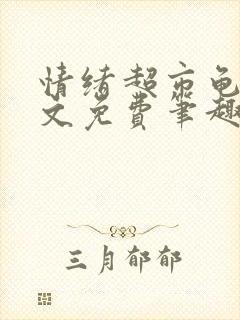 情绪超市龟
文免费笔趣
三月郁郁